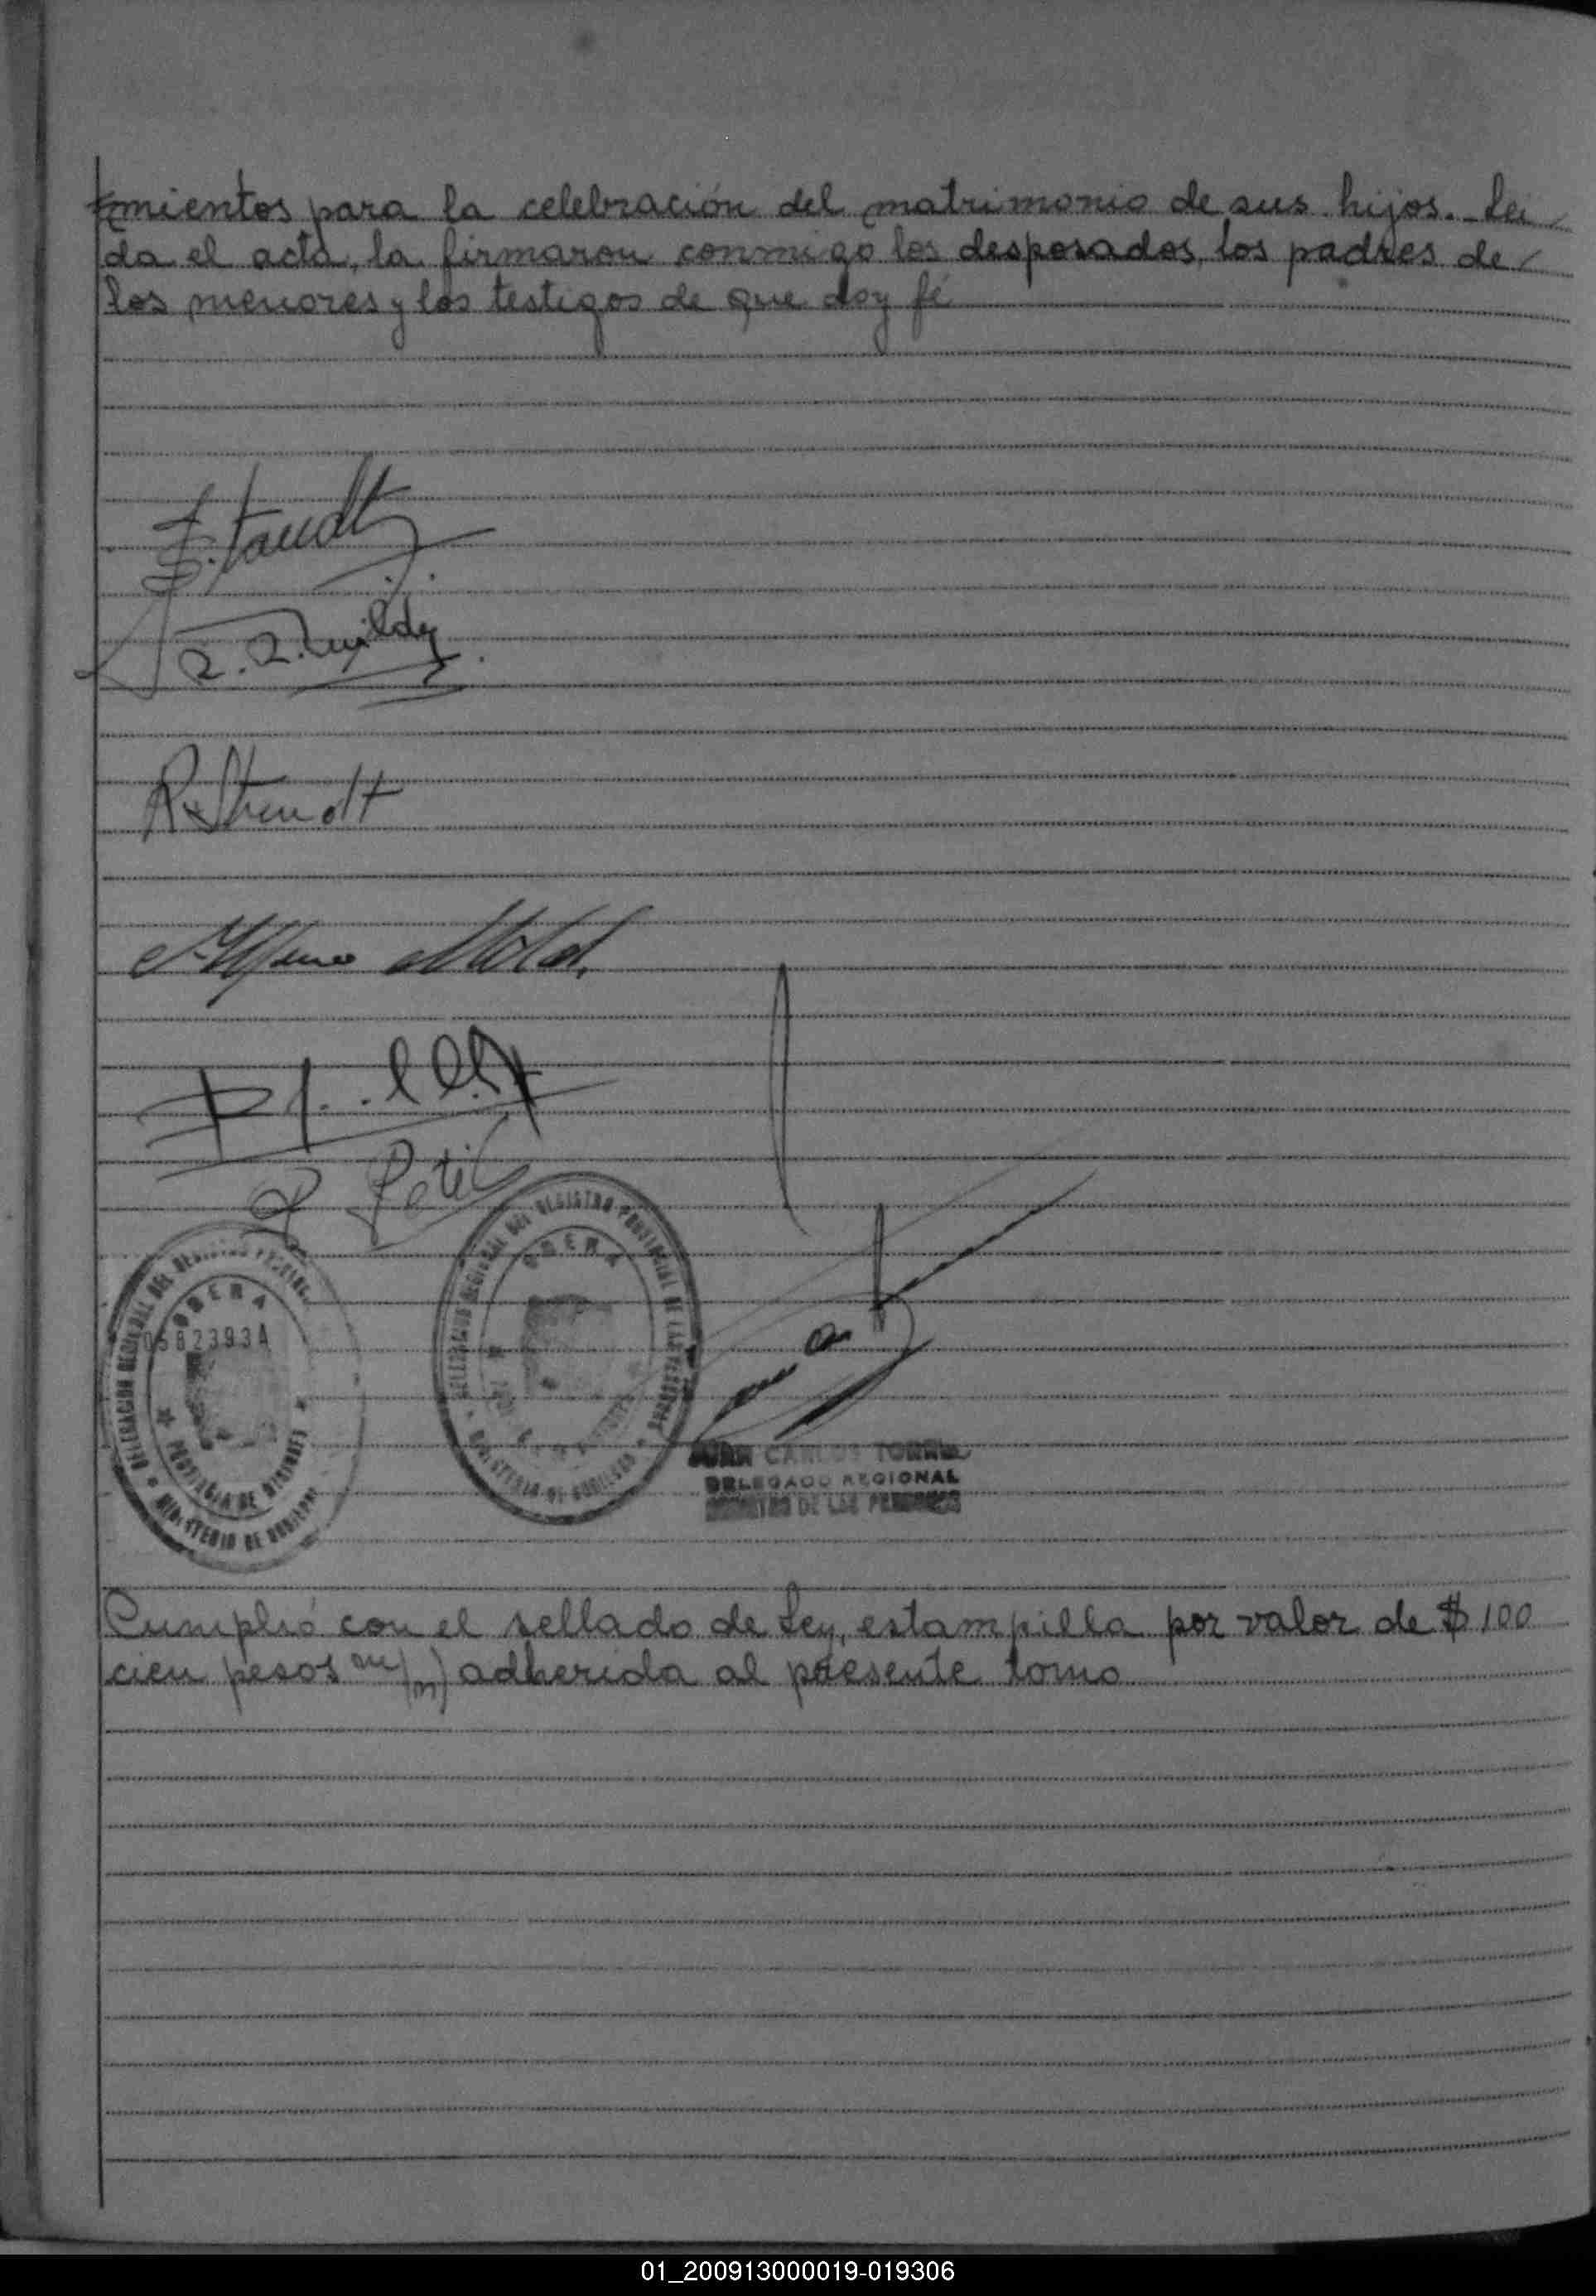 timientos para la celebración del matrimonio de sus hijos. Lei
da el acta, la firmaron conmigo los desposados, los padres de
los menores y los testigos de que doy fé
DELEGACION REGIONAL DEL REGISTRO PROVINCIAL
OBERA
0582393A
PROVINCIA DE MISIONES
MINISTERIO DE GOBIERNO
DELEGACION REGIONAL DEL REGISTRO PROVINCIAL DE LAS PERSONAS
OBERA
MINISTERIO DE GOBIERNO
JUAN CARLOS
DELEGADO REGIONAL
REGISTRO DE LAS PERSONAS
Cumplió con el sellado de Ley, estampilla por valor de $ 100
cien pesos m/n) adherida al presente tomo
01_200913000019-019306